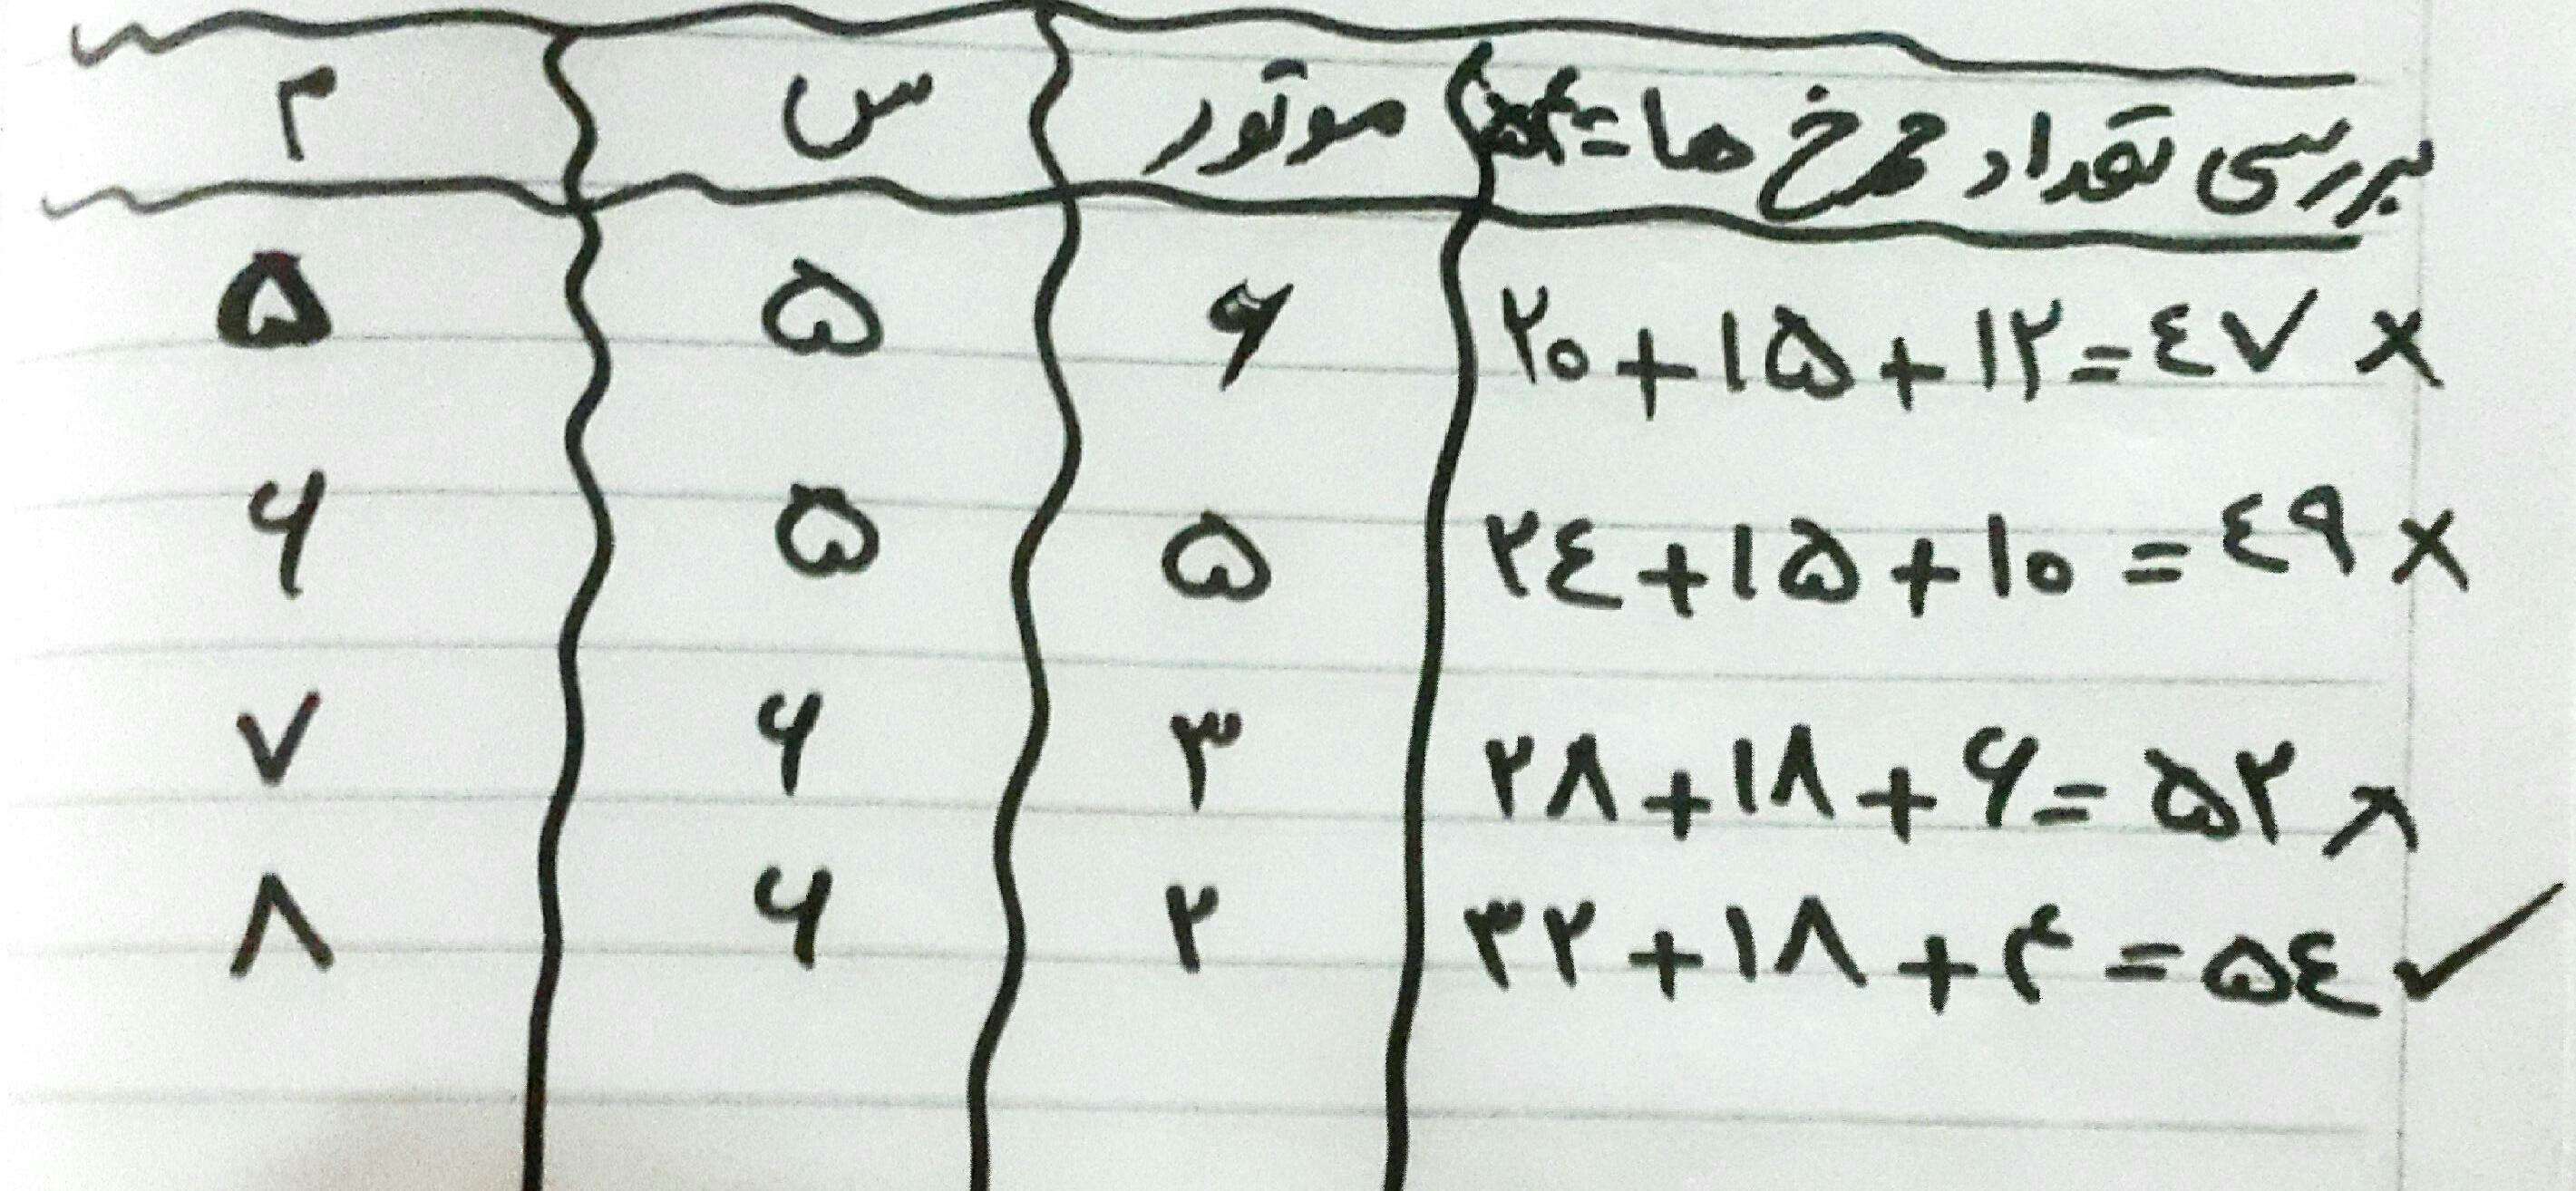 بررسی تعداد چرخ ها = موتور س م
۵ ۵ ۶ ۲۰+۱۵+۱۲=٤۷ ×
۶ ۵ ۵ ۲٤+۱۵+۱۰=٤۹ ×
۷ ۶ ۳ ۲۸+۱۸+۶=۵۲ ×
۸ ۶ ۲ ۳۲+۱۸+۴=۵٤ ✓